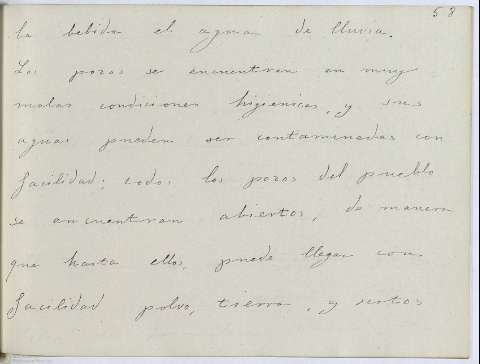 58
la bebida el agua de lluvia.
Los pozos se encuentran en muy
malas condiciones higienicas, y sus
aguas pueden ser contaminadas con
facilidad; todos los pozos del pueblo
se encuentran abiertos, de manera
que hasta ellos, puede llegar con
facilidad polvo, tierra, y restos